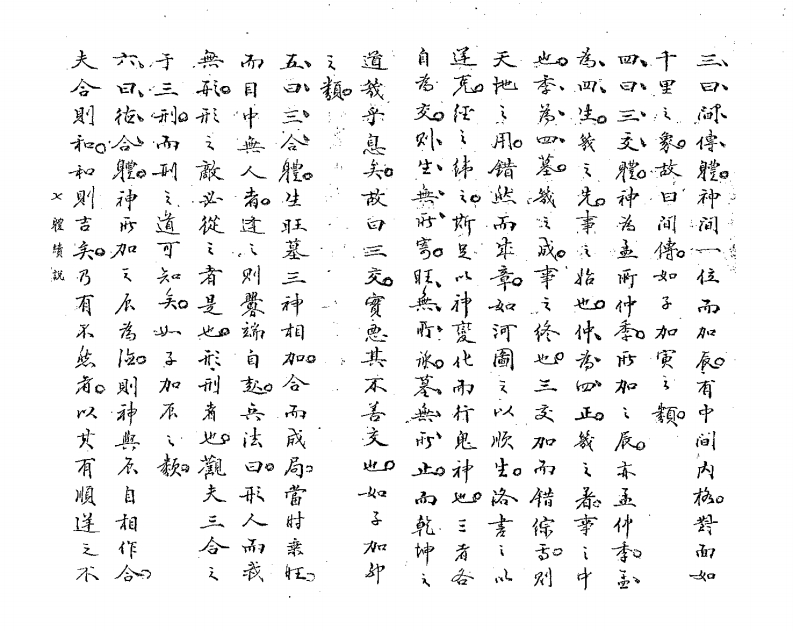 三、曰、間、傳、體。神間一位而加辰。有中間內格。對而如
千里之象。故曰間傳。如子加寅之類。
四、曰、三、交、體。神為孟所仲季。所加之辰。亦孟仲季。孟、
為、四、生。幾之先。事之始也。仲、為、四、正。幾之著。事之中
也。季、為、四、墓。幾之成。事之終也。三交加而錯綜焉。則
天地之用。錯然而成章。如河圖之以順生。洛書之以
逆克。經之緯之。斯足以神變化而行鬼神也。三者各
自為交。則、生、無、所、寄。旺、無、所、承。墓、無、所、止。而乾坤之
道幾乎息矣。故曰三交。實惡其不善交也。如子加卯
之類。
五、曰、三、合、體。生旺墓三神相加。合而成局。當時乘旺。
而目中無人者。逆之則釁端自起。兵法曰。形人而我
無形。形之敵必從之者是也。形刑者也。觀夫三合之
于三刑。而刑之道可知矣。如子加辰之類。
六、曰、德、合、體。神所加之辰為德。則神與辰自相作合。
夫合則和。和則吉矣。乃有不然者。以其有順逆之不
七體續說